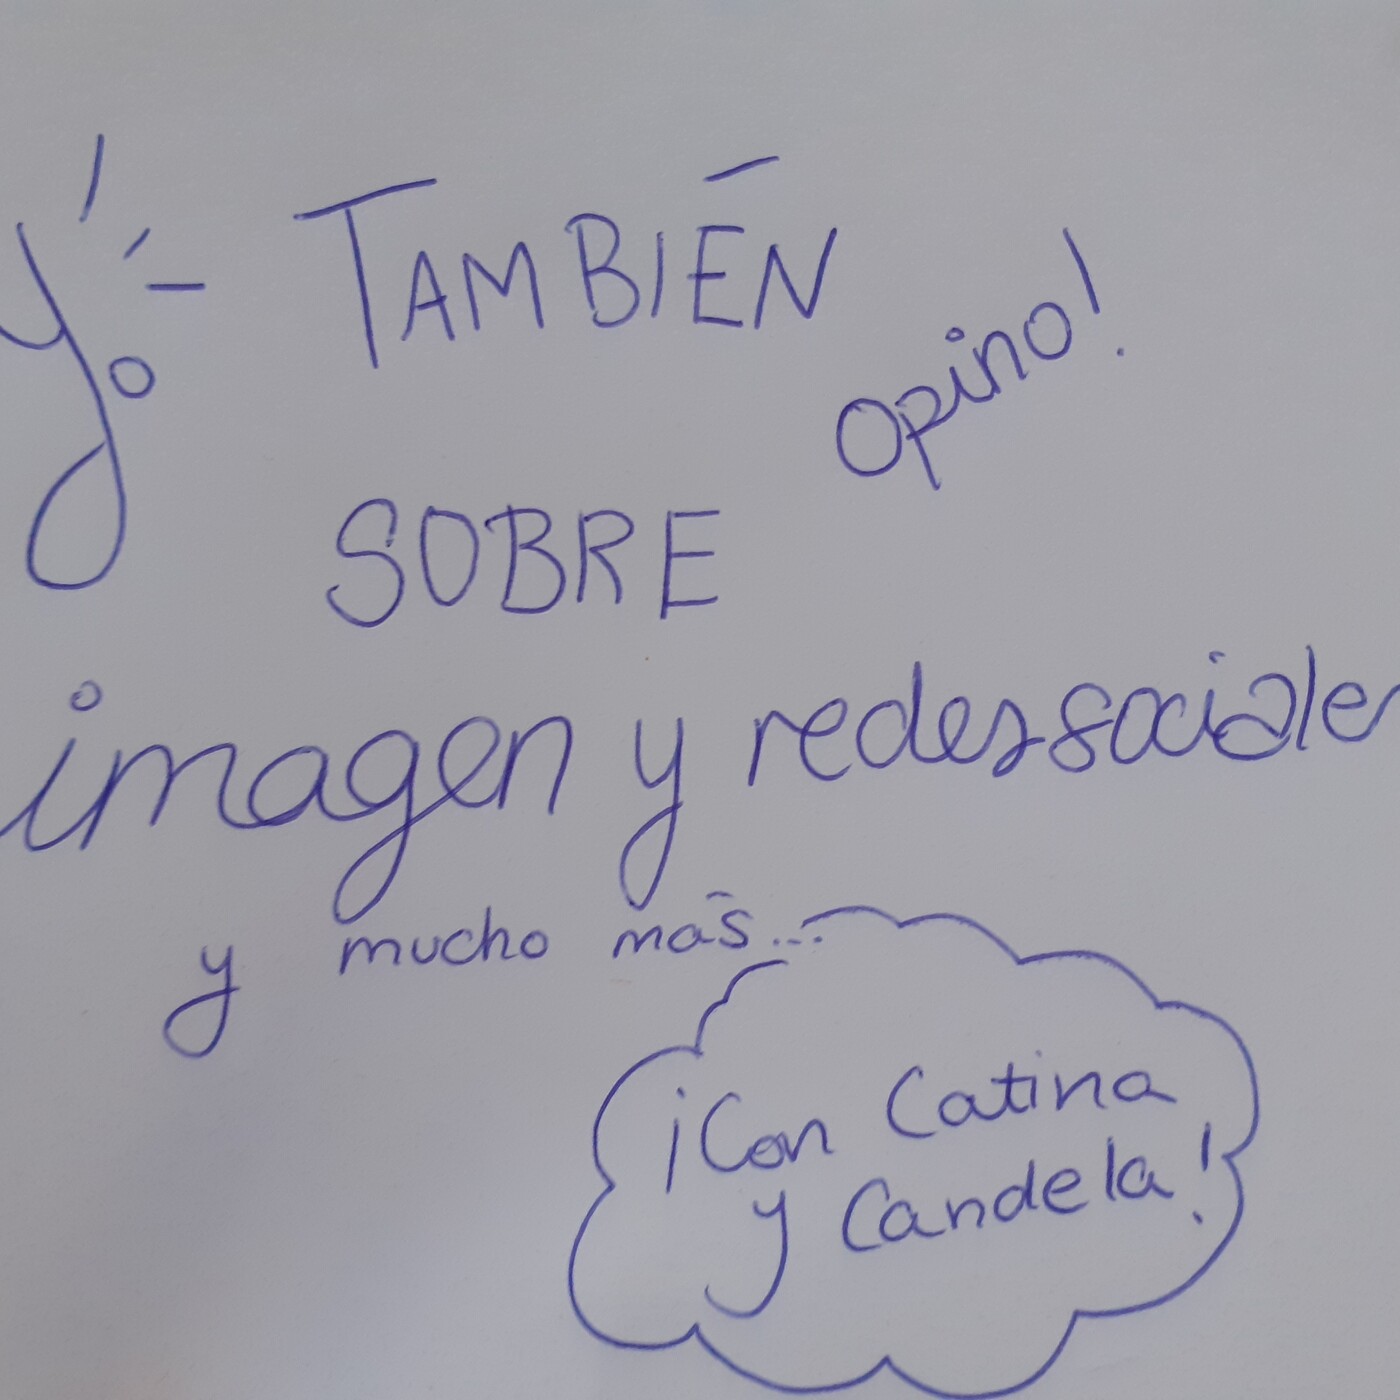 Yo TAMBIÉN
opino!
SOBRE
imagen y redes sociales
y mucho más...
¡Con Catina
y Candela!